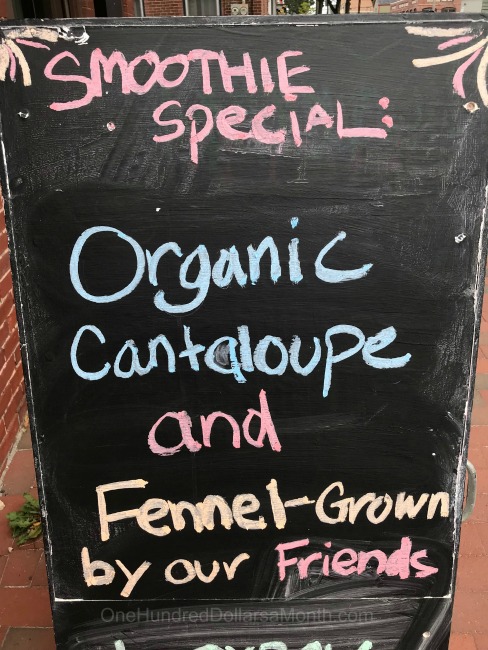 Smoothie
Special:
Organic
Cantaloupe
and
Fennel-Grown
by our Friends
OneHundredDollarsaMonth.com